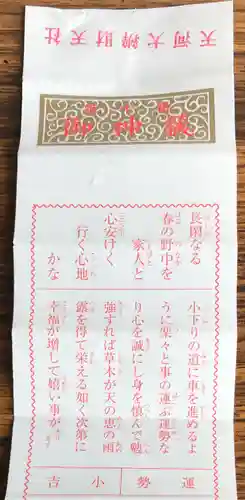 天河大辨財天社
長閑なる
春の野中を
家人と
心安けく
行く心地
かな
小下りの道に車を進めるよ
うに楽々と事の運ぶ運勢な
り心を誠にし身を慎んで勉
強すれば草木が天の恵の雨
露を得て栄える如く次第に
幸福が増して嬉い事が
運勢小吉